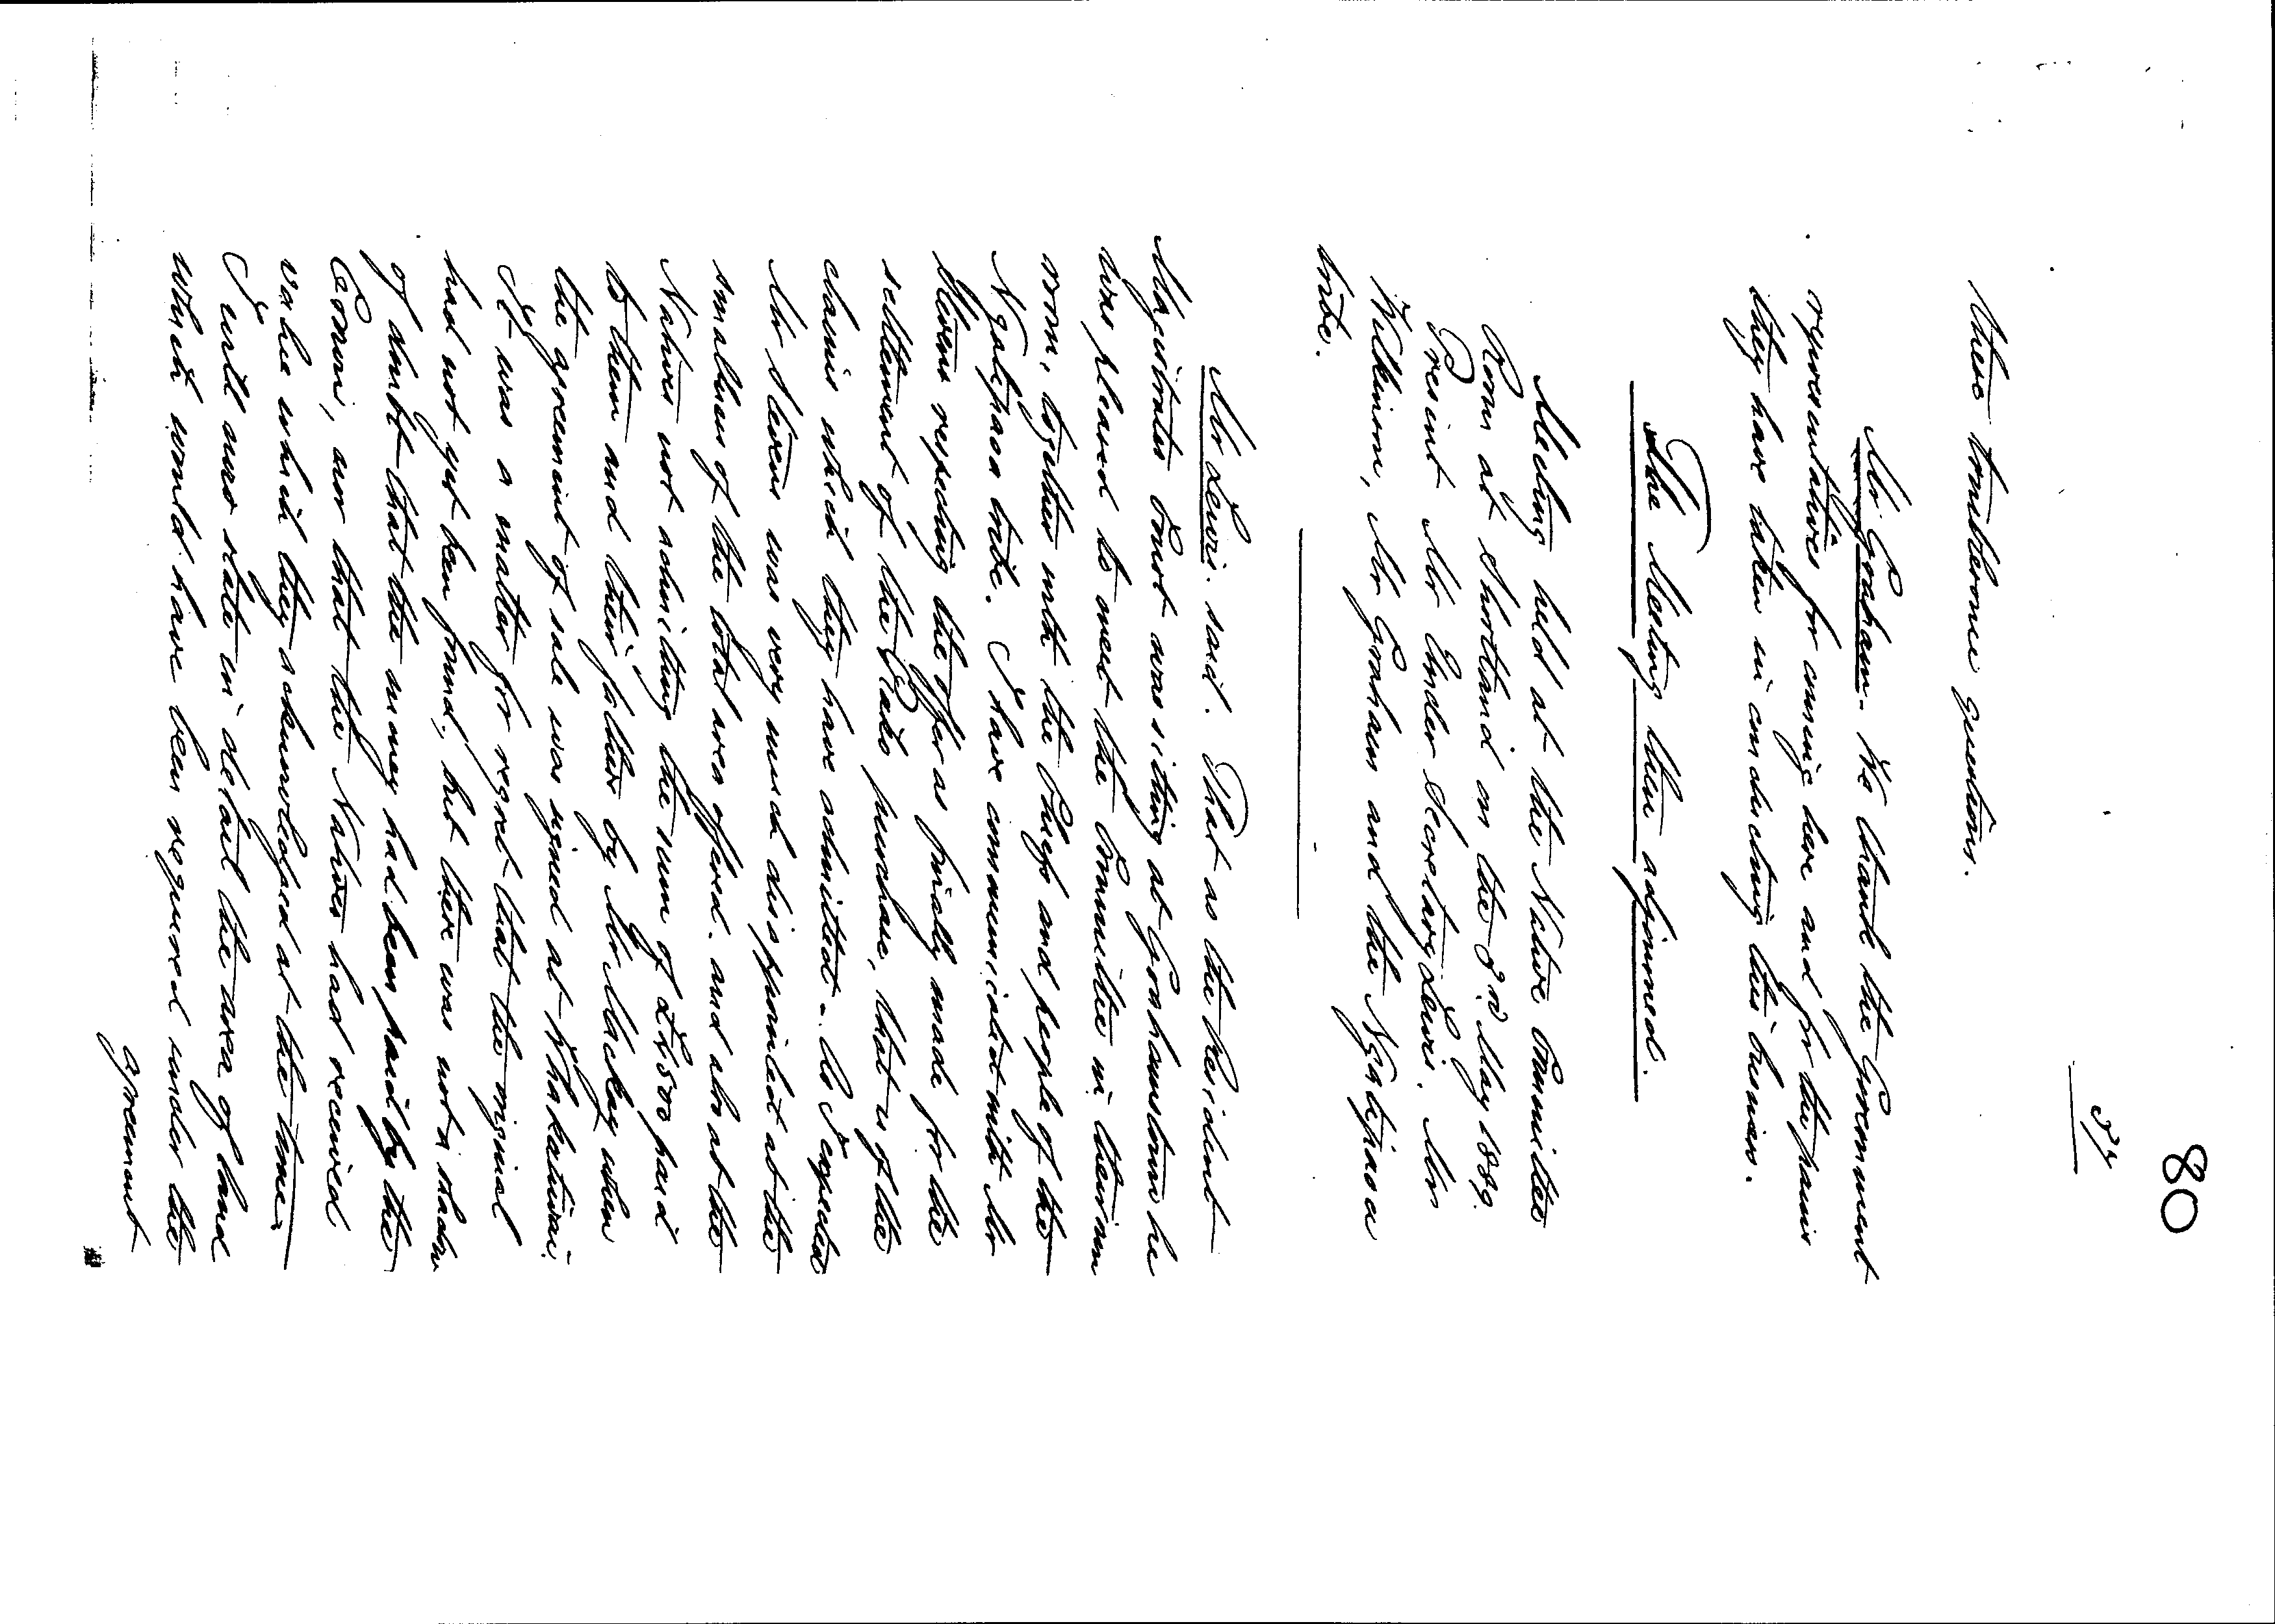 80
34
these troublesome questions.
Mr Graham - We thank the Government
representatives for coming here and for the pains
they have taken in conducting this business.
The Meeting then adjourned.
Meeting held at the Native Committee
Room at Shortland on the 3rd May 1889.
Present Mr Under Secretary Lewis. Mr
Wilkinson, Mr Graham and the Ngatipaoa
tribe.
Mr Lewis. said. That as the Resident
Magistrates Court was sitting at Grahamstown he
was pleased to meet the Committee in their own
room, together with the Chiefs and people of the
Ngatipaoa tribe. I have communicated with Mr
Stevens respecting the offer as finally made for the
settlement of the Piako purchase, that is of the
claims which they have admitted - As I expected
Mr Stevens was very much disappointed at the
smallness of the total area offered. and also at the
Natives not admitting the sum of £1500 paid
to them and their fathers by Mr Mackay when
the agreement of sale was signed at Whakatiwai.
It was a matter for regret that the original
had not yet been found, but there was not a shadow
of doubt that the money had been paid by the
Crown, nor that the Natives had received
value which they acknowledged at the time.
I will now state in detail the area of land
which would have been required under the
agreement